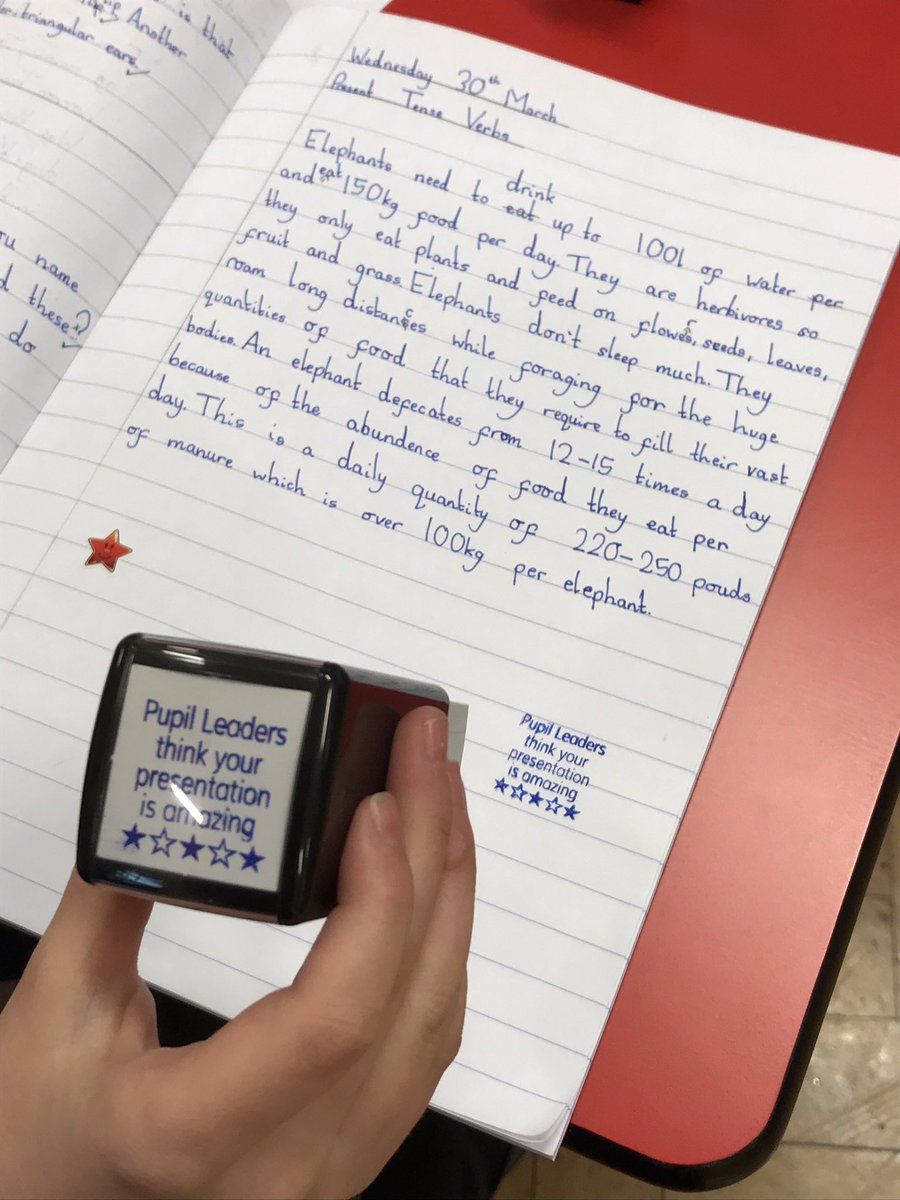 is that
Another
triangular ears.
name
these?
do
Wednesday 30th March
Present Tense Verbs
drink
Elephants need to eat up to 100l of water per
and eat 150kg food per day. They are herbivores so
they only eat plants and feed on flowers, seeds, leaves,
fruit and grass. Elephants don't sleep much. They
roam long distances while foraging for the huge
quantities of food that they require to fill their vast
bodies. An elephant defecates from 12-15 times a day
because of the abundence of food they eat per
day. This is a daily quantity of 220-250 pouds
of manure which is over 100kg per elephant.
Pupil Leaders
think your
presentation
is amazing
Pupil Leaders
think your
presentation
is amazing